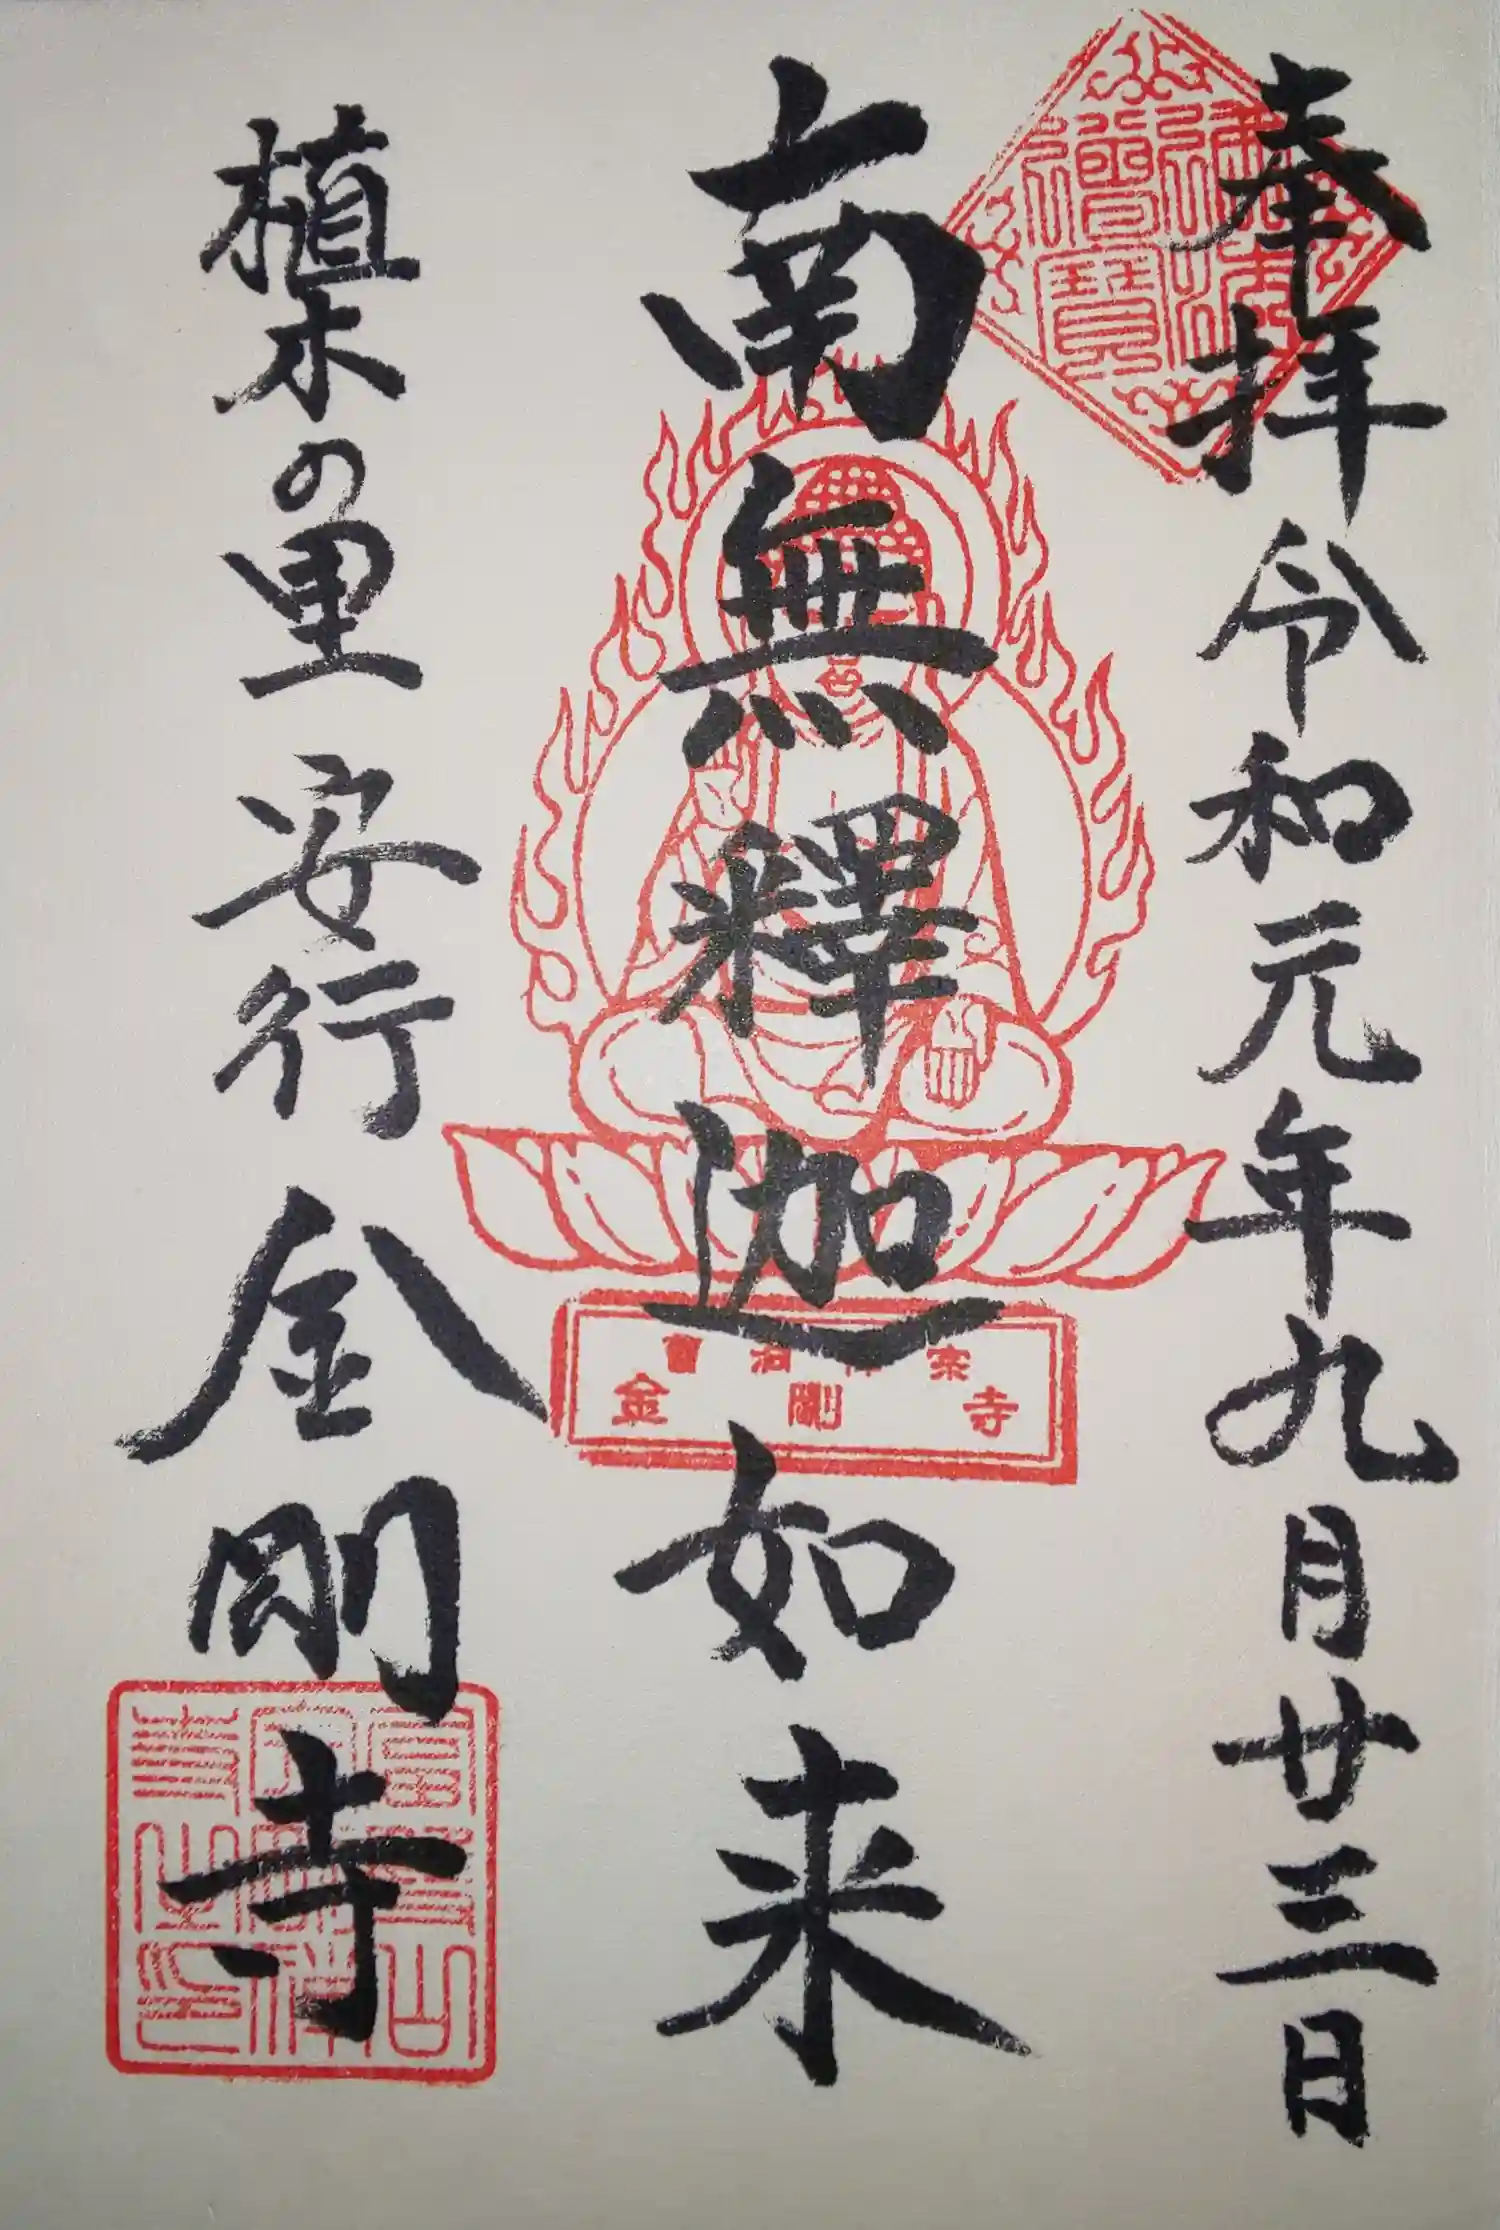 奉拝 令和元年九月廿三日
佛法僧寳
南無釋迦如来
曹洞禅宗
金剛寺
植木の里 安行 金剛寺